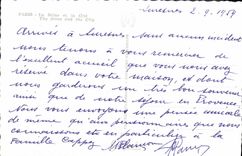 PARIS
Suresnes 2.9.1957
Arrivés à Suresnes, sans aucun incident
nous tenons à vous remercier de
l'excellent accueil que vous nous avez
réservé dans votre maison, et dont
nous garderons un très bon souvenir
ainsi que de notre séjour en Provence.
Nous vous envoyons une pensée amicale
de même qu'aux personnes que nous
connaissons et en particulier à la
Famille Cappez